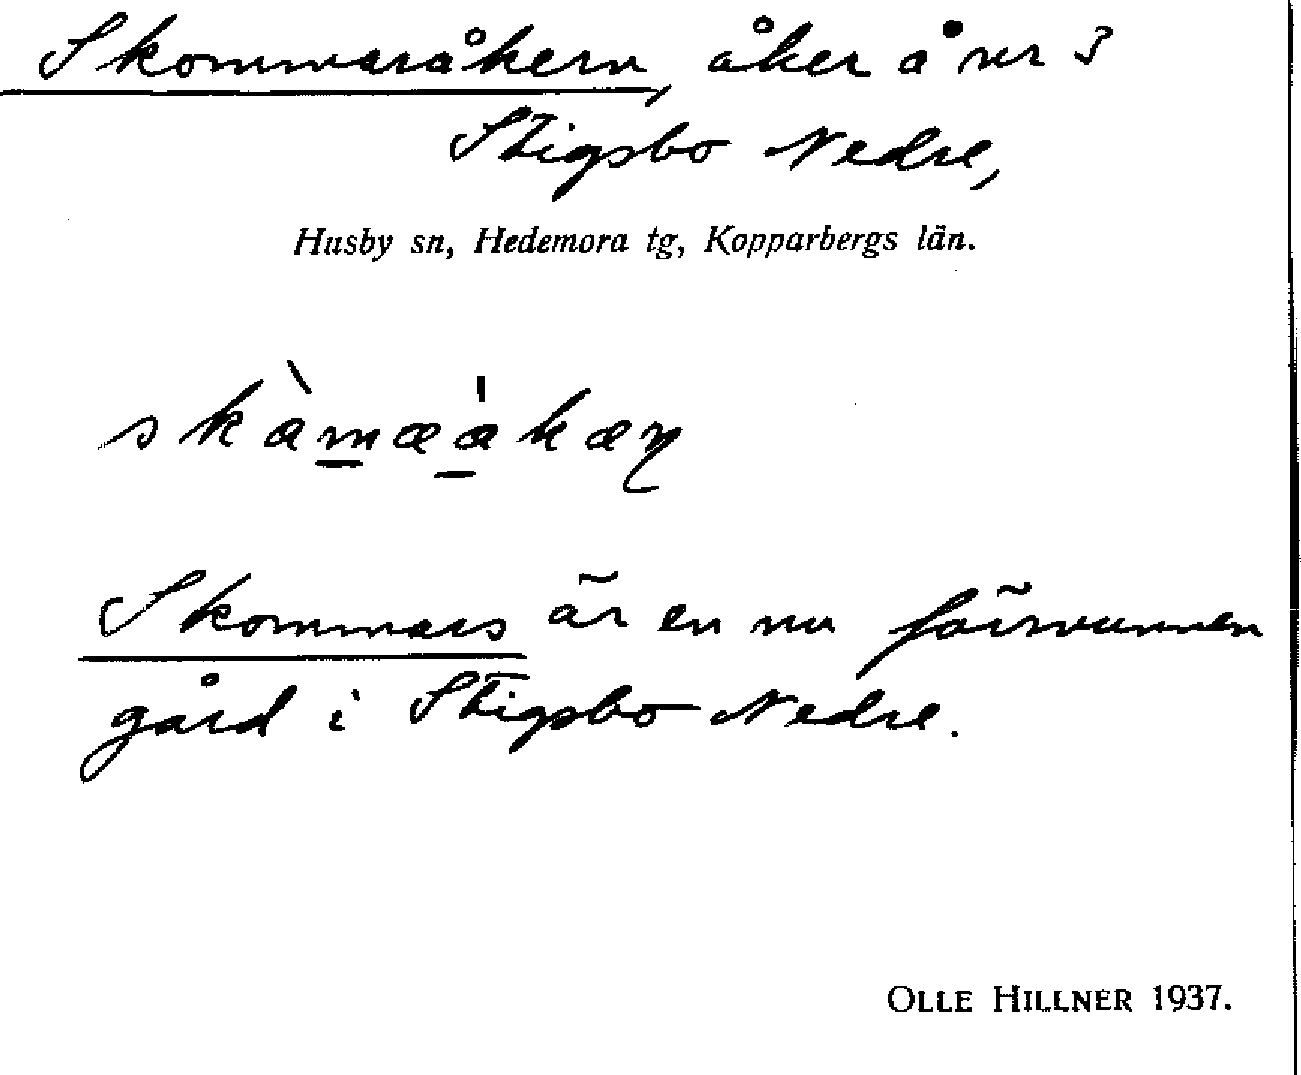 Skommaråkern, åker å nr 3
Stigsbo Nedre,
Husby sn, Hedemora tg, Kopparbergs län.
Skommars är en nu försvunnen
gård i Stigsbo Nedre.
OLLE HILLNER 1937.